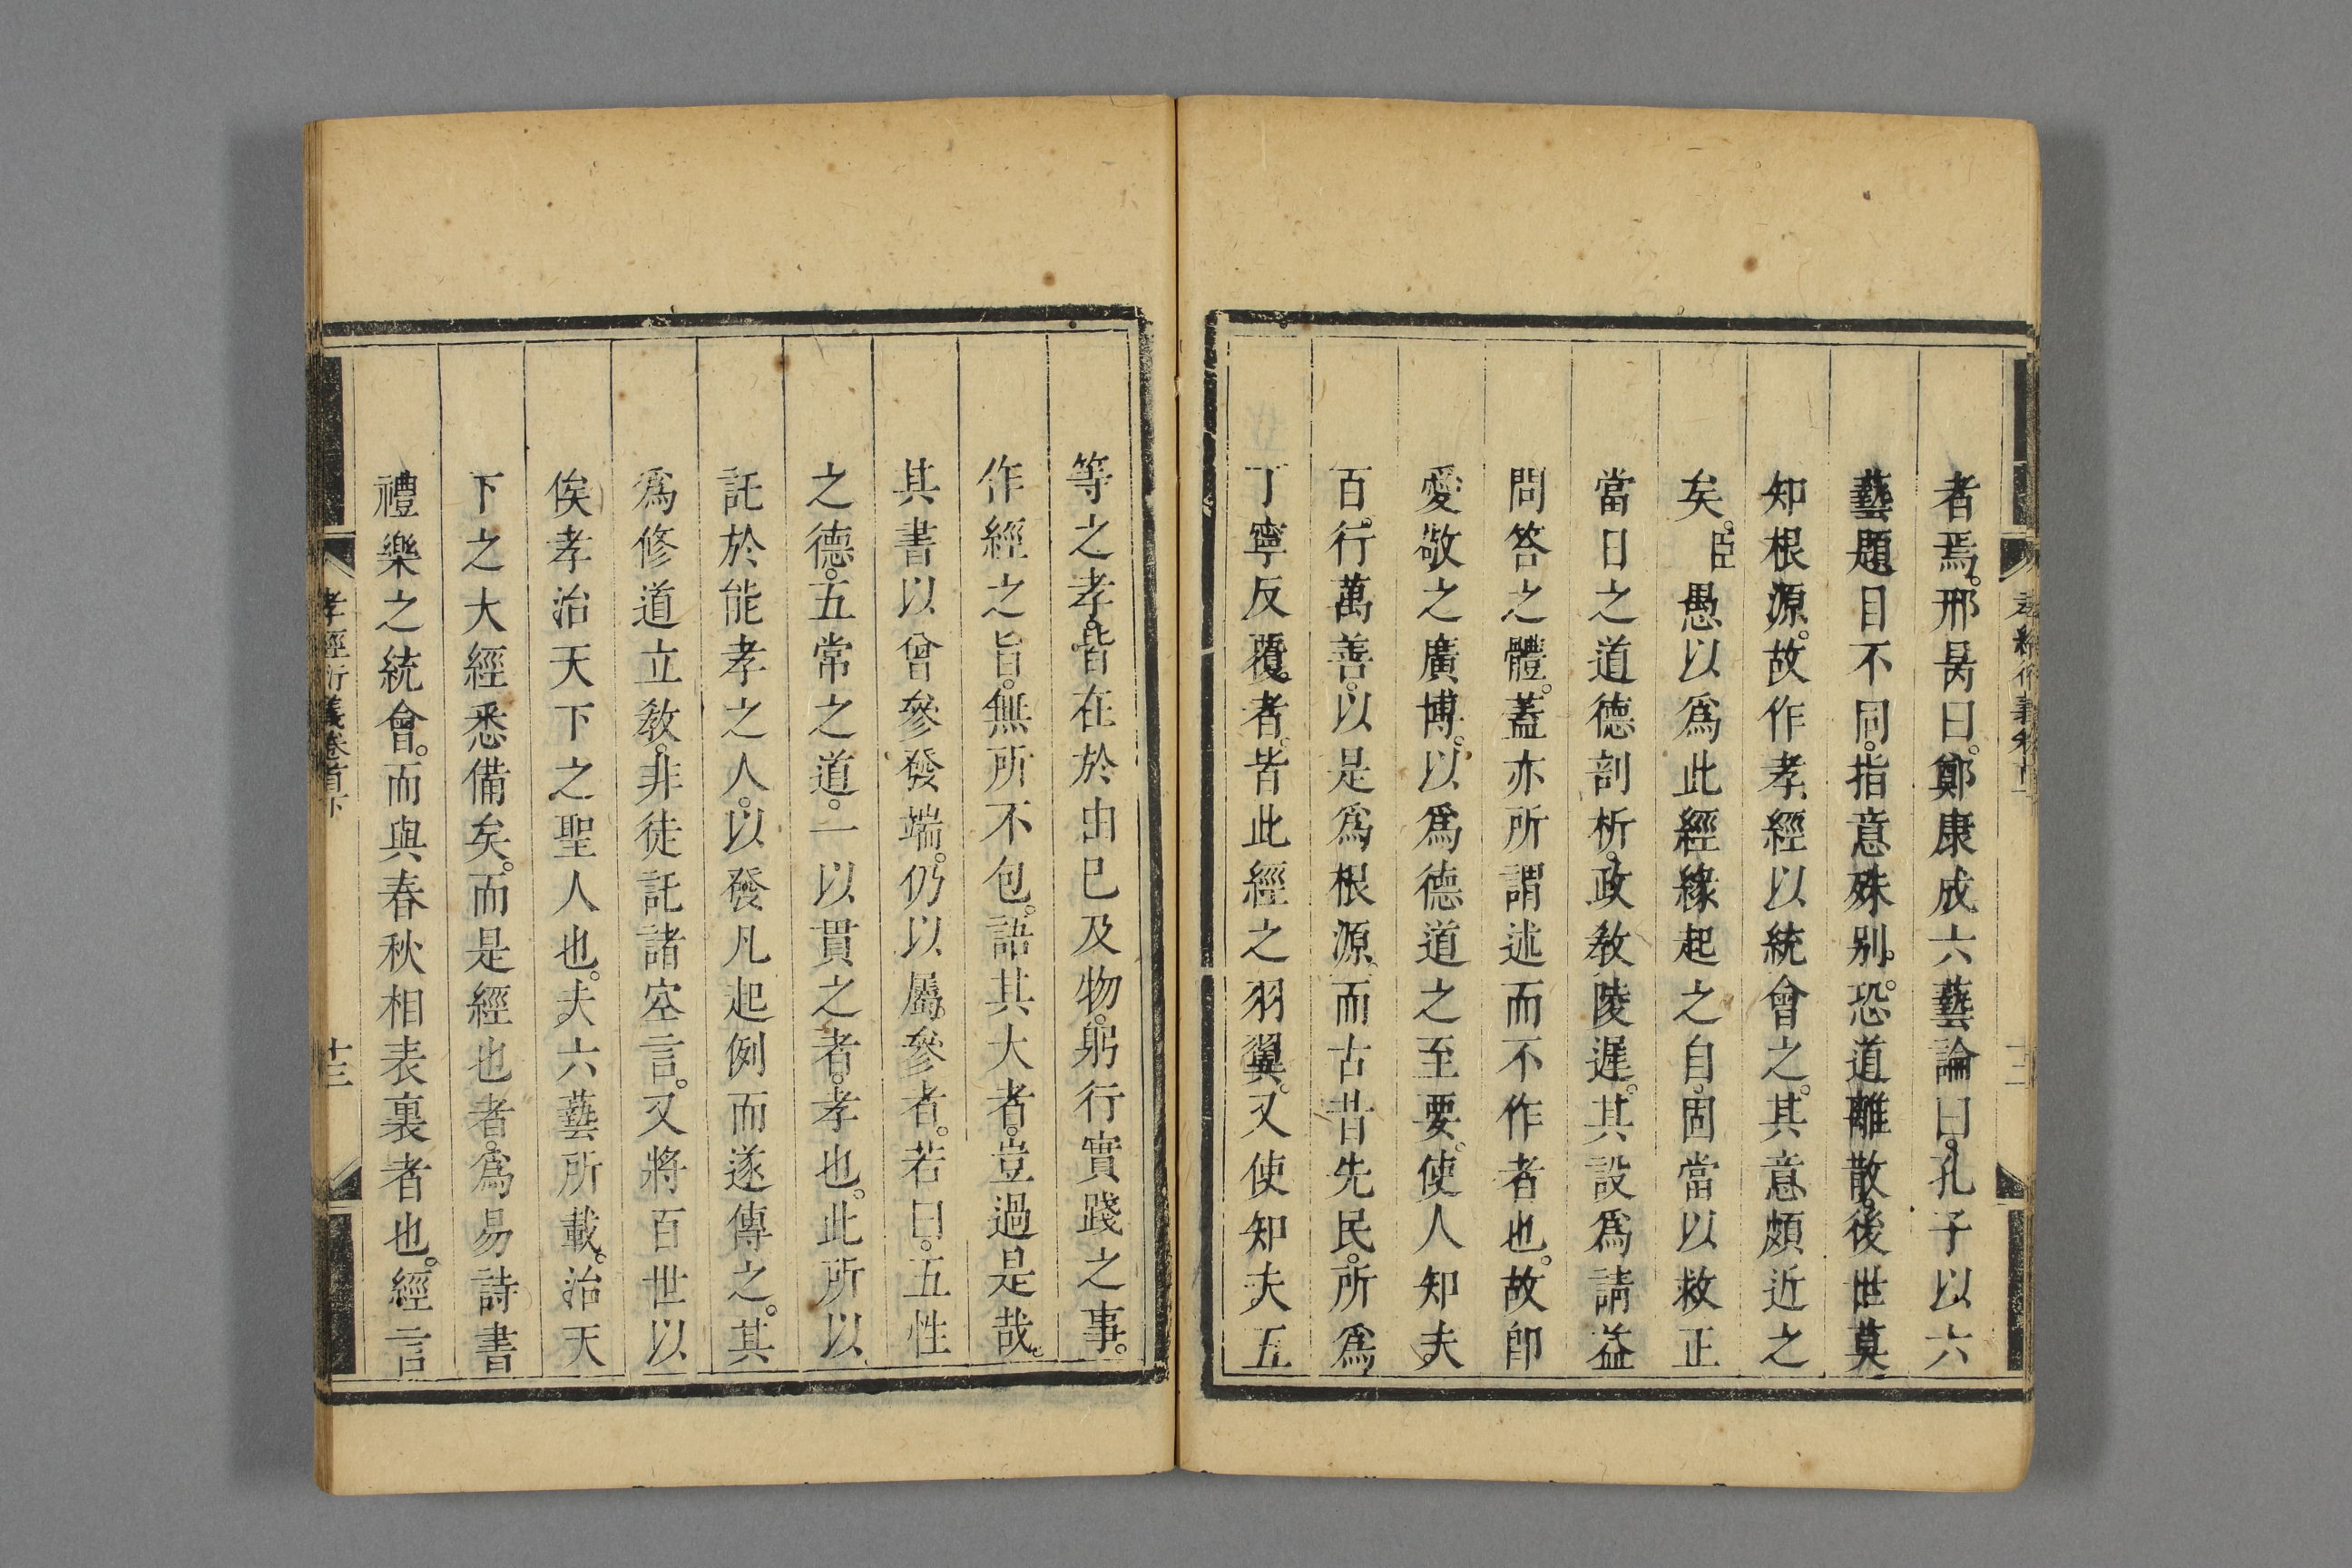 者焉。邢昺曰。鄭康成六藝論曰。孔子以六
藝題目不同。指意殊别。恐道離散。後世莫
知根源。故作孝經以統會之。其意頗近之
矣。臣愚以爲此經緣起之自。固當以救正
當日之道德剖析。政教陵遲。其設爲請益
問答之體。蓋亦所謂述而不作者也。故卽
愛敬之廣博。以爲德道之至要。使人知夫
百行萬善。以是爲根源。而古昔先民。所爲
丁寧反覆者。皆此經之羽翼。又使知夫五
等之孝。皆在於由已及物。躬行實踐之事。
作經之旨。無所不包。語其大者。豈過是哉。
其書以曾參發端。仍以屬參者。若曰。五性
之德。五常之道。一以貫之者。孝也。此所以
託於能孝之人。以發凡起例而遂傳之。其
爲修道立教。非徒託諸空言。又將百世以
俟孝治天下之聖人也。夫六藝所載。治天
下之大經悉備矣。而是經也者。爲易詩書
禮樂之統會。而與春秋相表裏者也。經言
孝經衍義卷首下
十三